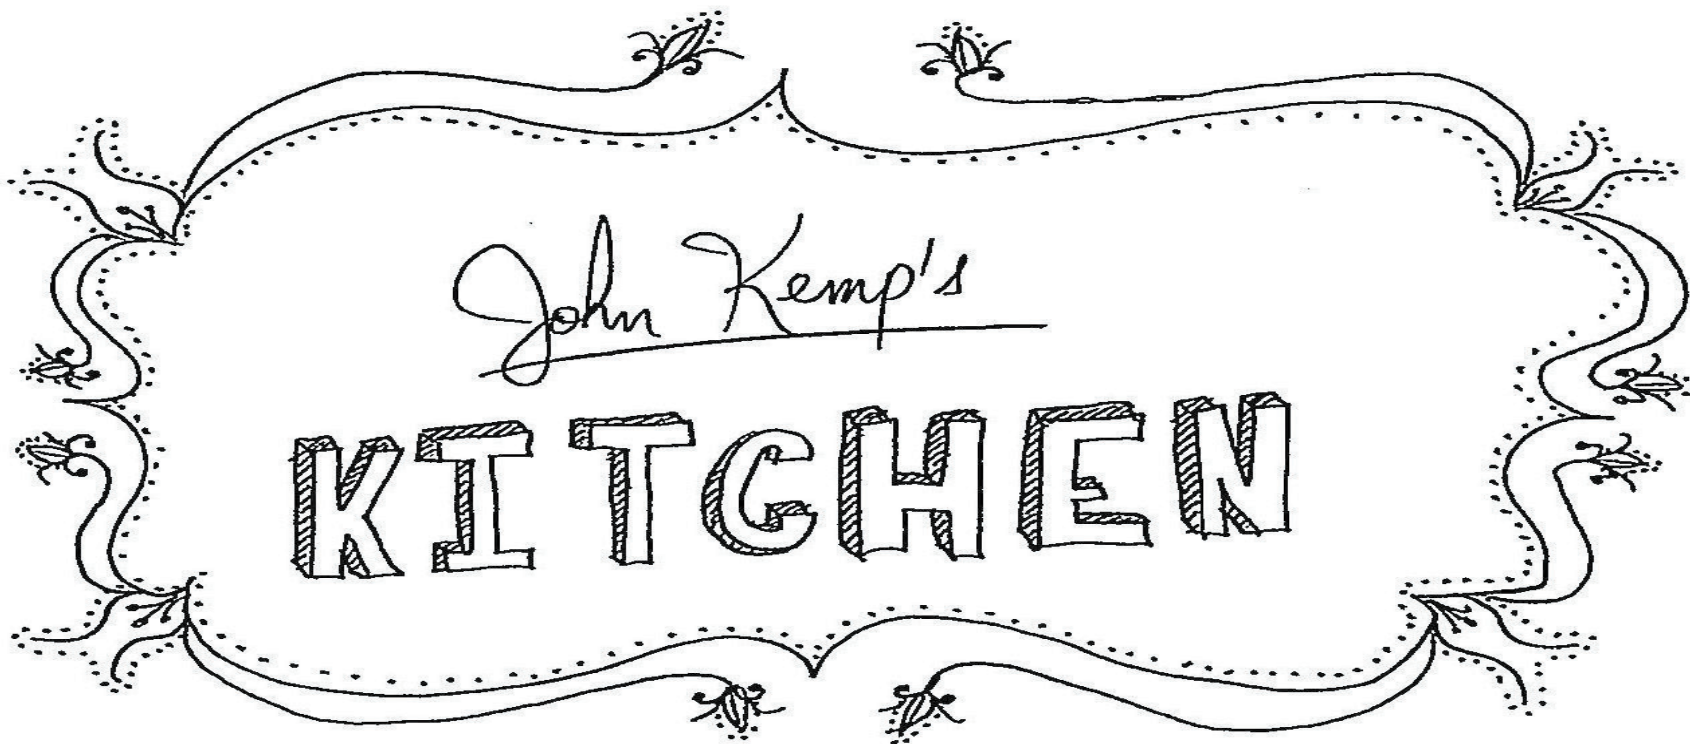 John Kemp's
KITCHEN